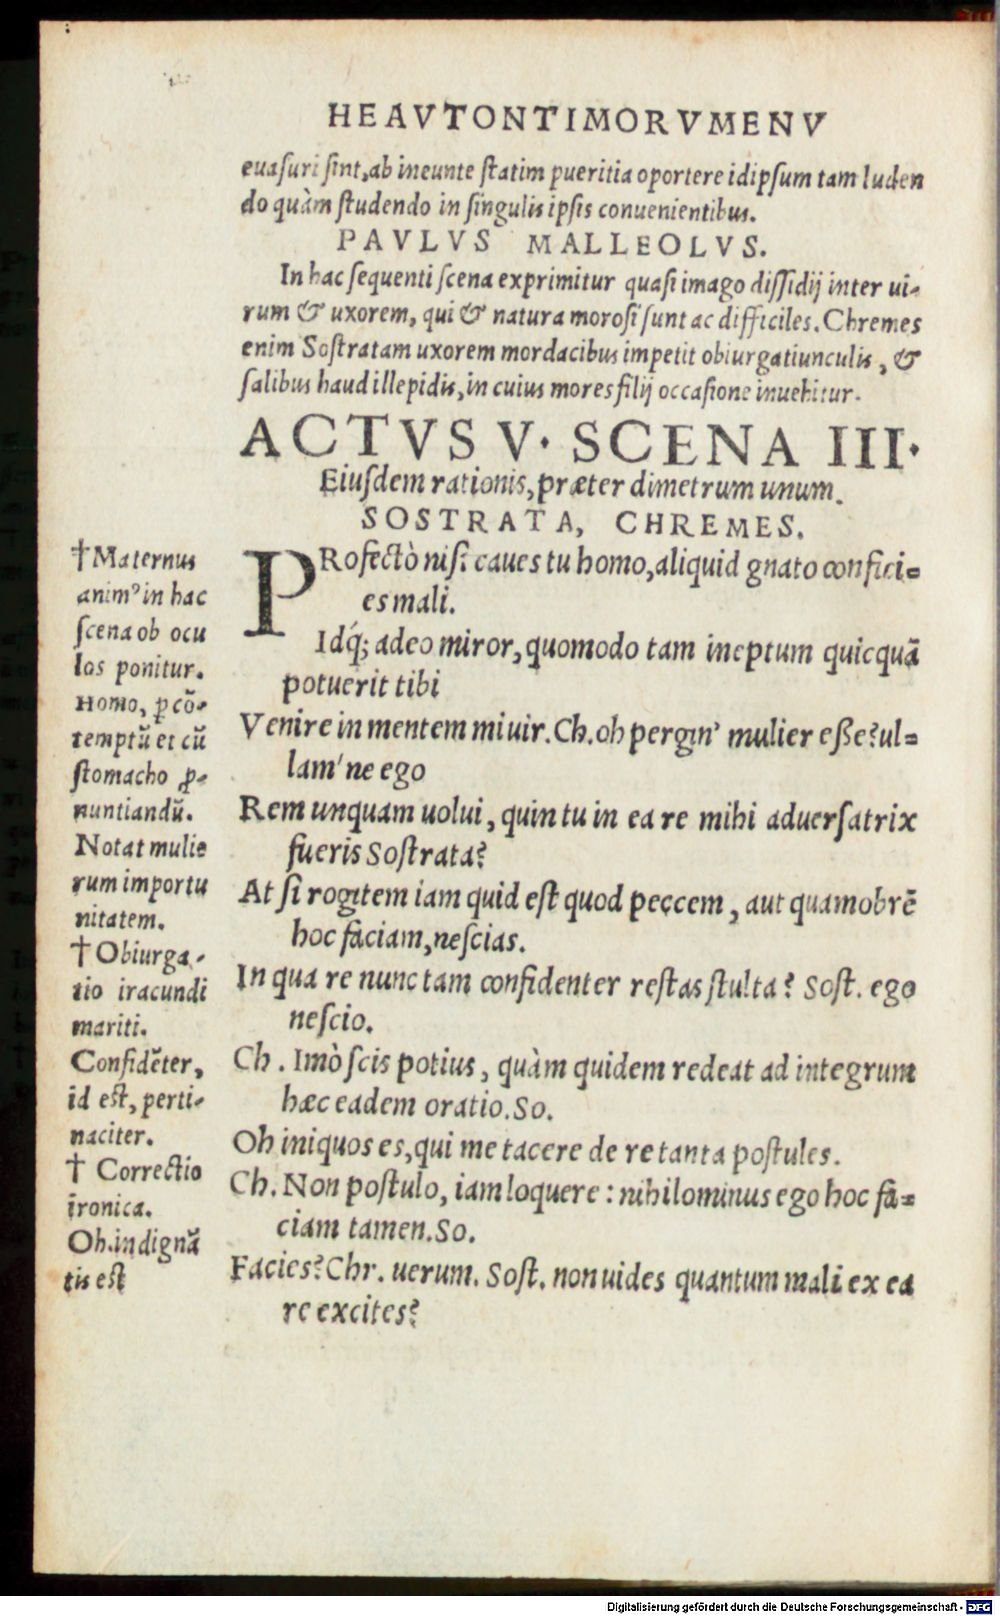 HEAVTONTIMORVMENV
euaſuri ſint, ab ineunte ſtatim pueritia oportere idipſum tam luden
do quàm ſtudendo in ſingulis ipſis conuenientibus.
PAVLVS MALLEOLVS.
In hac ſequenti ſcena exprimitur quaſi imago diſſidij inter ui-
rum & uxorem, qui & natura moroſi ſunt ac difficiles. Chremes
enim Soſtratam uxorem mordacibus impetit obiurgatiunculis, &
ſalibus haud illepidis, in cuius mores filij occaſione inuehitur.
ACTVS V. SCENA III.
Eiuſdem rationis, præter dimetrum unum.
SOSTRATA, CHREMES.
PRofectò niſi caues tu homo, aliquid gnato confici-
es mali.
Idq́; adeo miror, quomodo tam ineptum quicquã
potuerit tibi
Venire in mentem mi uir. Ch. oh pergin' mulier eſſe? ul-
lam'ne ego
Rem unquam uolui, quin tu in ea re mihi aduerſatrix
fueris Soſtrata?
At ſi rogitem iam quid eſt quod peccem, aut quamobrẽ
hoc faciam, neſcias.
In qua re nunc tam confidenter reſtas ſtulta? Soſt. ego
neſcio.
Ch. Imò ſcis potius, quàm quidem redeat ad integrum
hæc eadem oratio. So.
Oh iniquos es, qui me tacere de re tanta poſtules.
Ch. Non poſtulo, iam loquere: nihilominus ego hoc fa-
ciam tamen. So.
Facies? Chr. uerum. Soſt. non uides quantum mali ex ea
re excites?
†Maternus
animꝰ in hac
ſcena ob ocu
los ponitur.
Homo, ꝑ cõ-
temptũ et cũ
ſtomacho ꝓ-
nuntiandũ.
Notat mulie
rum importu
nitatem.
†Obiurga-
tio iracundi
mariti.
Confidẽter,
id eſt, perti-
naciter.
† Correctio
ironica.
Oh. indignã
tis eſt
Digitalisierung gefördert durch die Deutsche Forschungsgemeinschaft - DFG